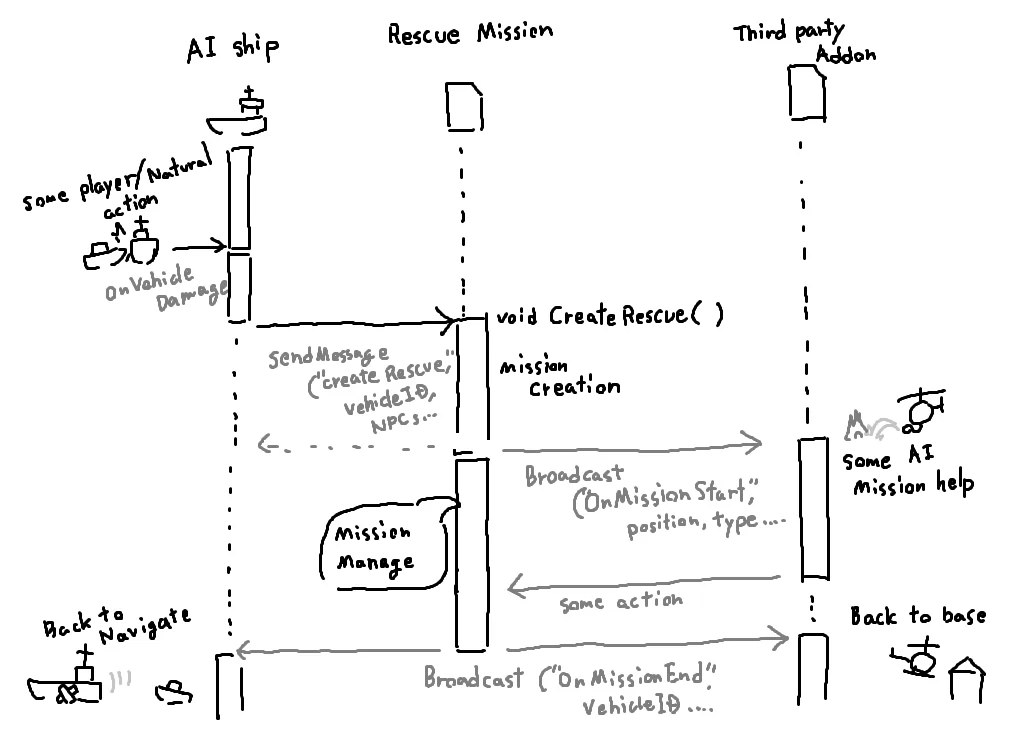 AI ship
Rescue Mission
Third party
Addon
some player/Natural
action
OnVehicle
Damage
void CreateRescue( )
SendMessage
("create Rescue",
vehicleID,
NPCs...
mission
creation
Broadcast
("OnMissionStart",
position, type....
some AI
Mission help
Mission
Manage
some action
Back to
Navigate
Back to base
Broadcast ("OnMissionEnd",
vehicleID ....